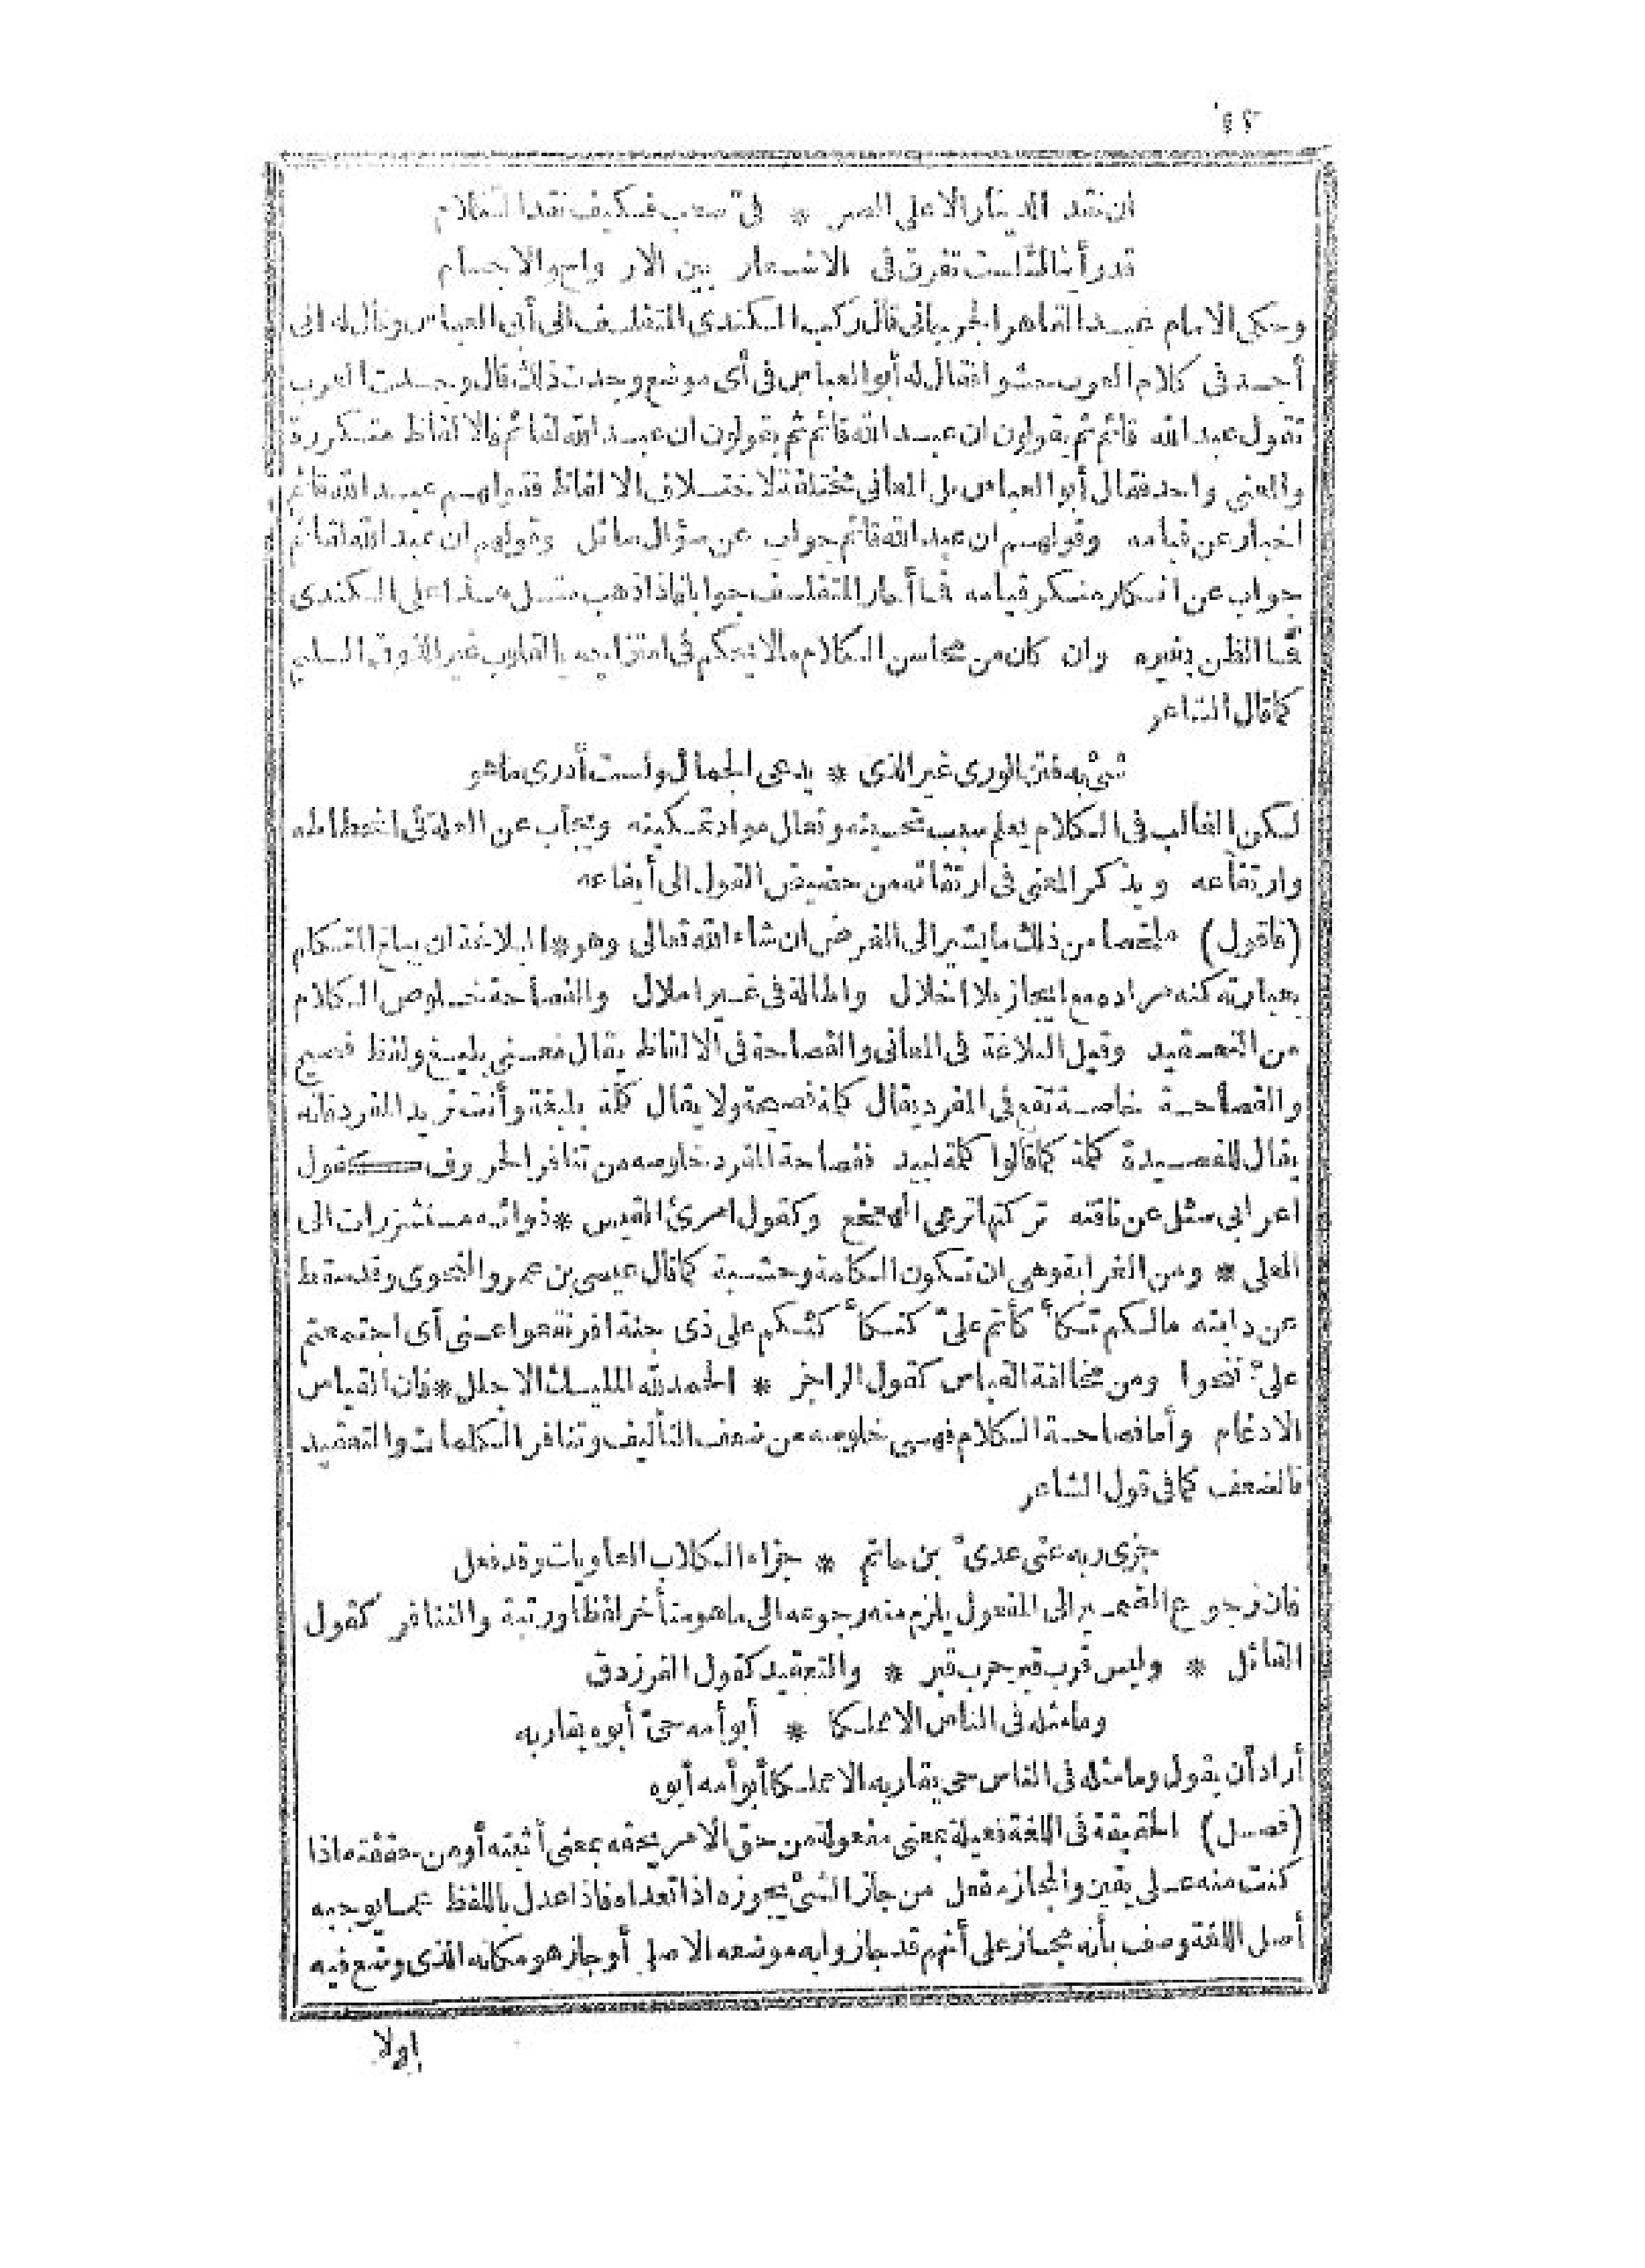 ان نقد الدينار الا على الصير * فى صعب فكيف نقد الكلام
قد رأيناك لست تفرق فى الاشعار بين الارواح والاجسام
وحكى الامام عبد القاهر الجرجانى قال ركب الكندى المتفلسف الى أبى العباس وقال له انى
أجد فى كلام العرب حشوا فقال له أبو العباس فى أى موضع وجدت ذلك قال وجدت العرب
تقول عبد الله قائم ثم يقولون ان عبد الله قائم ثم يقولون ان عبد الله لقائم فالالفاظ متكررة
والمعنى واحد فقال أبو العباس بل المعانى مختلفة لاختلاف الالفاظ فقولهم عبد الله قائم
اخبار عن قيامه وقولهم ان عبد الله قائم جواب عن سؤال سائل وقولهم ان عبد الله لقائم
جواب عن انكار منكر قيامه فما أحار المتفلسف جوابا فاذا ذهب مثل هذا على الكندى
فما الظن بغيره وان كان من محاسن الكلام مالا يحكم فى امتزاجه بالقلوب غير الذوق السليم
كما قال الشاعر
شئ به فتن الورى غير الذى * يدعى الجمال ولست أدرى ما هو
لكن الغالب فى الكلام يعلم سبب تحسينه وتعال مواد تمكينه ويجاب عن العلة فى انحطاطه
وارتفاعه ويذكر المعنى فى ارتقائه من حضيض القول الى أيفاعه
(فاقول) ملخصا من ذلك ما يشير الى الغرض ان شاء الله تعالى وهو * البلاغة ان يبلغ المتكلم
بعبارته كنه مراده مع ايجاز بلا اخلال واطالة فى غير املال والفصاحة خلوص الكلام
من التعقيد وقيل البلاغة فى المعانى والفصاحة فى الالفاظ يقال معنى بليغ ولفظ فصيح
والفصاحة خاصة تقع فى المفرد يقال كلمة فصيحة ولا يقال كلمة بليغة وأنت تريد المفرد فانه
يقال للقصيدة كلمة كما قالوا كلمة لبيد ففصاحة المفرد خلوصه من تنافر الحروف كقول
اعرابى سئل عن ناقته تركتها ترعى الهعخع وكقول امرئ القيس * غدائره مستشزرات الى
العلى * ومن الغرابة وهى ان تكون الكلمة وحشية كما قال عيسى بن عمرو النحوى وقد سقط
عن دابته مالكم تكأ كأتم علىّ كتكأ كئكم على ذى جنة افرنقعوا عنى أى اجتمعتم
علىّ تنحوا ومن مخالفة القياس كقول الراجز * الحمد لله المليك الاجلل * فان القياس
الادغام وأما فصاحة الكلام فهى خلوصه من ضعف التأليف وتنافر الكلمات والتعقيد
فالضعف كما فى قول الشاعر
جزى ربه عنى عدىّ بن حاتم * جزاء الكلاب العاويات وقد فعل
فان رجوع الضمير الى المفعول يلزم منه رجوعه الى ما هو متأخر لفظا ورتبة والتنافر كقول
القائل * وليس قرب قبر حرب قبر * والتعقيد كقول الفرزدق
وما مثله فى الناس الا مملكا * أبو أمه حىّ أبوه يقاربه
أراد أن يقول وما مثله فى الناس حى يقاربه الا مملكا أبو أمه أبوه
(فصل) الحقيقة فى اللغة فعيلة بمعنى مفعولة من حق الامر يحقه بمعنى أثبته أو من حققته اذا
كنت منه على يقين والمجاز مفعل من جاز الشئ يجوزه اذا تعداه فاذا عدل باللفظ عما يوجبه
أصل اللغة وصف بأنه مجاز على أنهم قد جازوا به موضعه الاصلى أو جاز هو مكانه الذى وضع فيه
اولا